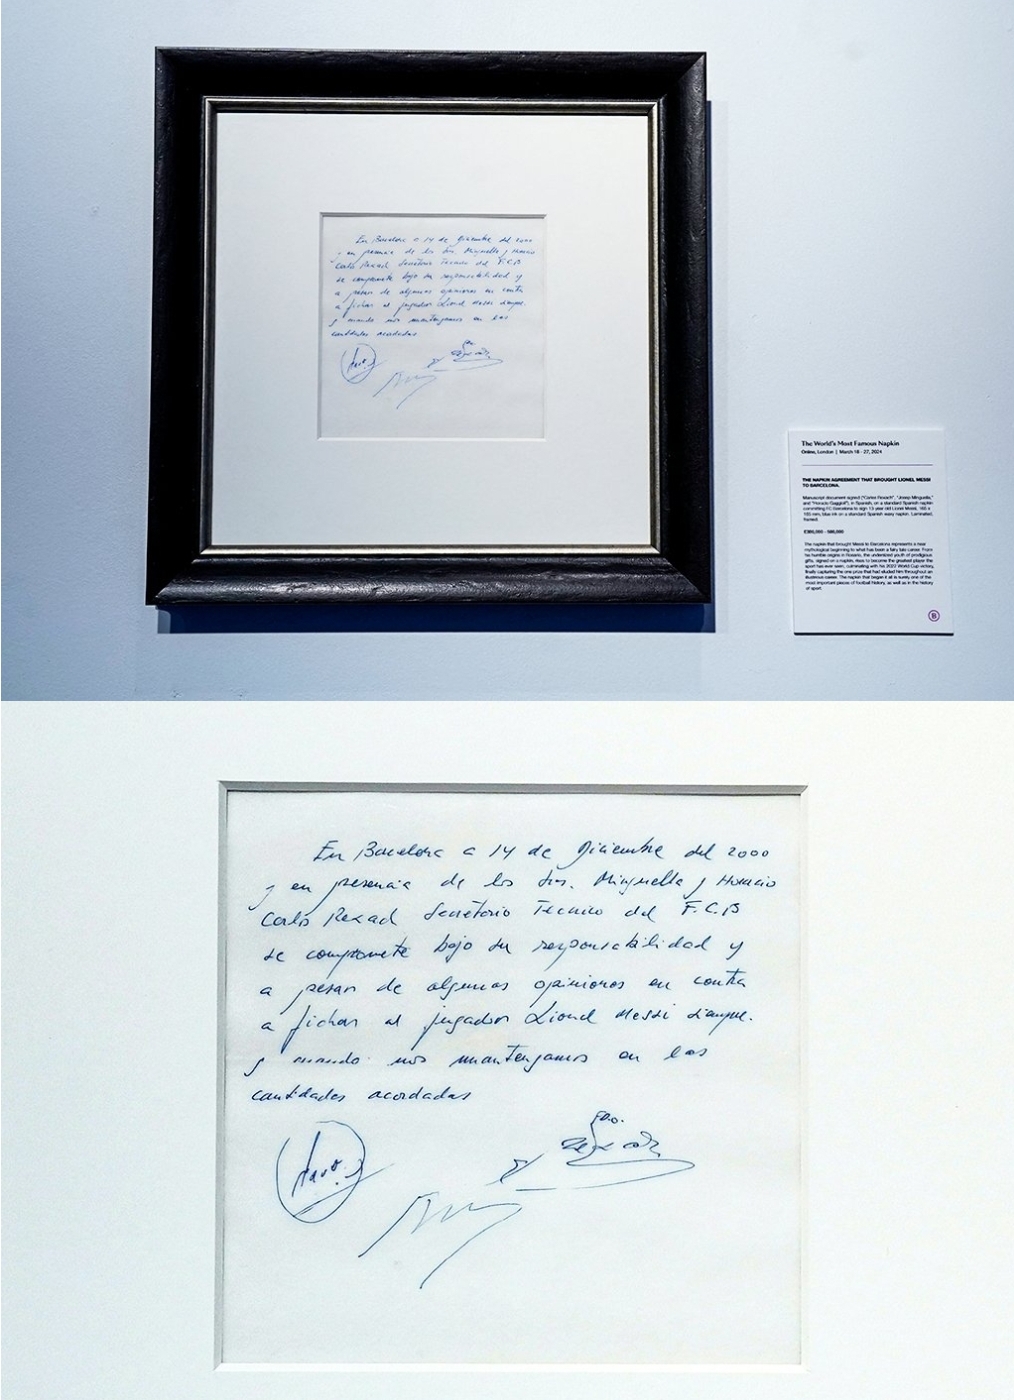 En Barcelona a 14 de Diciembre del 2000
y en presencia de los Sres. Minguella y Horacio
Carlos Rexach Secretario Tecnico del F.C.B
se compromete bajo su responsabilidad y
a pesar de algunas opiniones en contra
a fichar al jugador Lionel Messi siempre
y cuando nos mantengamos en las
cantidades acordadas
The World's Most Famous Napkin
Online, London | March 18 - 27, 2024
THE NAPKIN AGREEMENT THAT BROUGHT LIONEL MESSI
TO BARCELONA.
Manuscript document signed ("Carles Rexach", "Josep Minguella,"
and "Horacio Gaggioli"), in Spanish, on a standard Spanish napkin
committing FC Barcelona to sign 13 year old Lionel Messi, 165 x
165 mm, blue ink on a standard Spanish waxy napkin. Laminated,
framed.
The napkin that brought Messi to Barcelona represents a near
mythological beginning to what has been a fairy tale career. From
his humble origins in Rosario, the undersized youth of prodigious
gifts, signed on a napkin, rises to become the greatest player the
sport has ever seen, culminating with his 2022 World Cup victory,
finally capturing the one prize that had eluded him throughout an
illustrious career. The napkin that began it all is surely one of the
most important pieces of football history, as well as in the history
of sport.
B
En Barcelona a 14 de Diciembre del 2000
y en presencia de los Sres. Minguella y Horacio
Carlos Rexach Secretario Tecnico del F.C.B
se compromete bajo su responsabilidad y
a pesar de algunas opiniones en contra
a fichar al jugador Lionel Messi siempre
y cuando nos mantengamos en las
cantidades acordadas